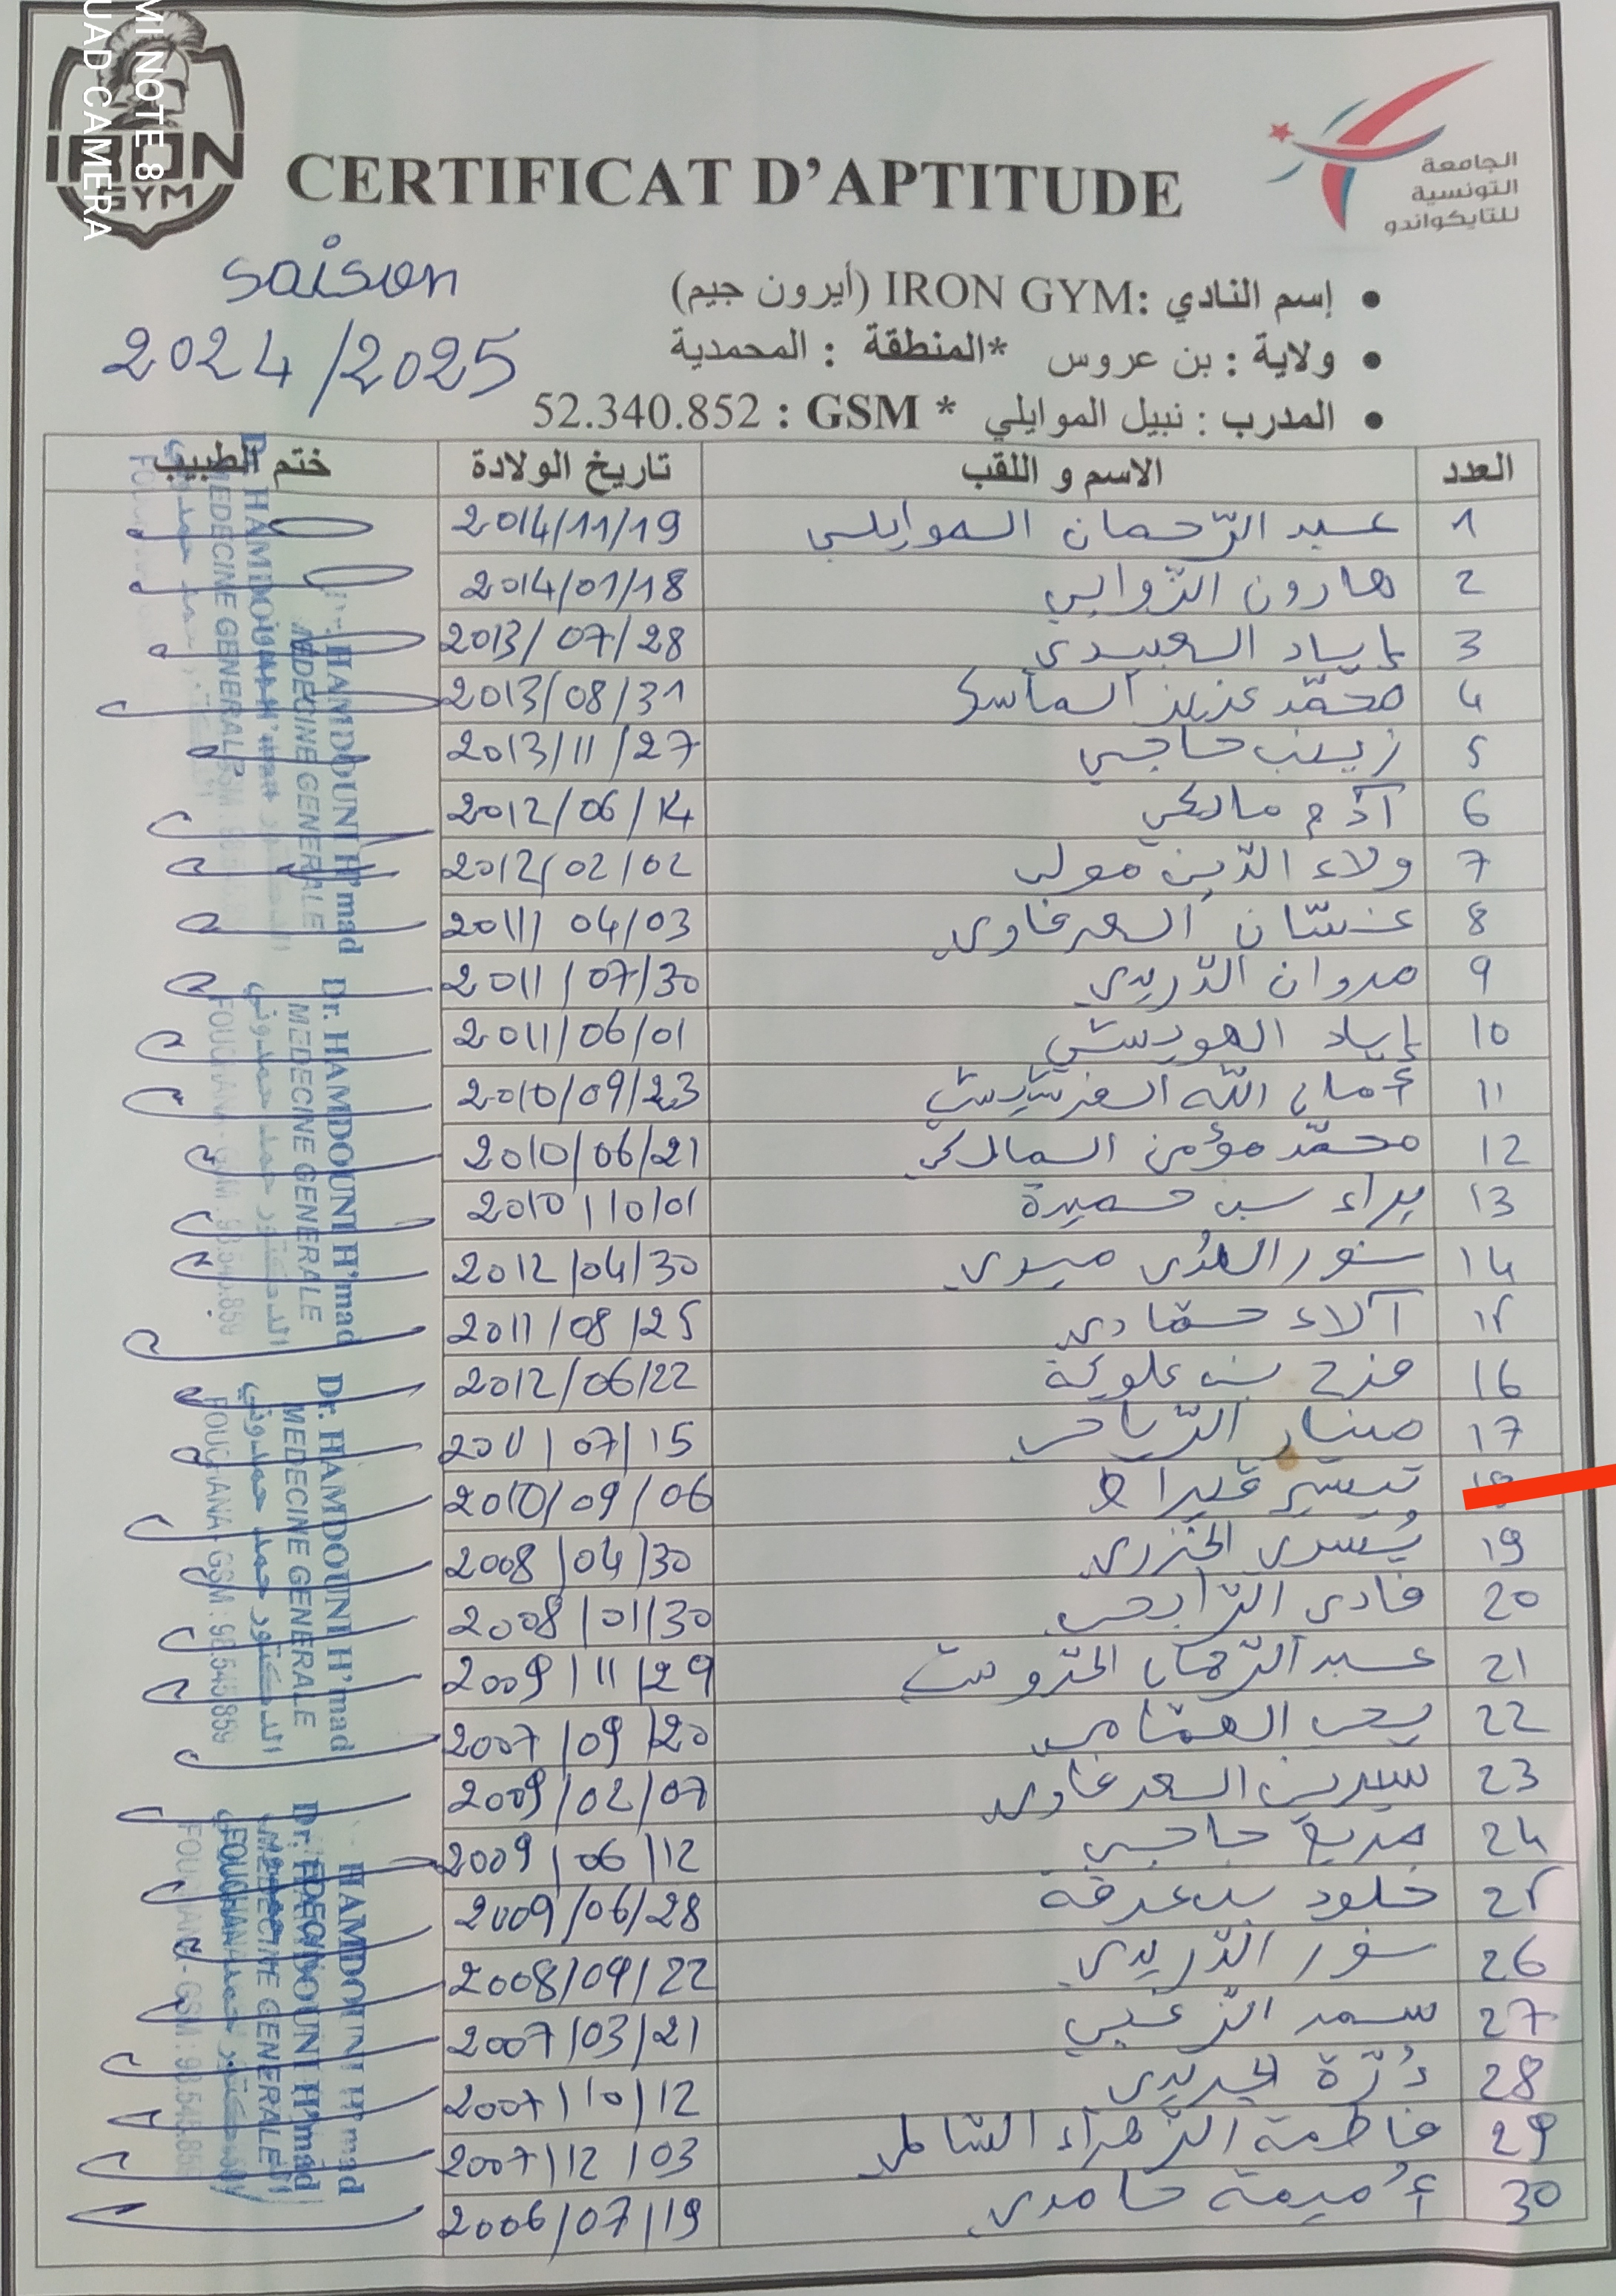 MI NOTE 8
UAD CAMERA
IRON
GYM
CERTIFICAT D'APTITUDE
الجامعة
التونسية
للتايكواندو
saison
2024/2025
إسم النادي :IRON GYM (أيرون جيم)
ولاية : بن عروس *المنطقة : المحمدية
المدرب : نبيل الموايلي * GSM : 52.340.852
العدد الاسم و اللقب تاريخ الولادة ختم الطبيب
1 عبد الرّحمان الموايلي 2014/11/19
2 هارون الزوابي 2014/01/18
3 إياد العبيدي 2013/07/28
4 محمّد عزيز 2013/08/31
5 زينب حاجي 2013/11/27
6 آدم مالكي 2012/06/14
7 ولاء الدّين 2012/02/02
8 غسّان السعرفاوي 2011/04/03
9 مروان الدّريدي 2011/07/30
10 إياد 2011/06/01
11 أمان الله 2010/09/23
12 محمّد مؤمن المالكي 2010/06/21
13 براء بن حميدة 2010/10/01
14 نور الهدى ميدي 2012/04/30
15 آلاء حمّادي 2011/08/25
16 فرح بن علوية 2012/06/22
17 منار الرّياحي 2011/07/15
تيسير قيراط 2010/09/06
19 يُسرى الخزري 2008/04/30
20 فادي الرّابحي 2008/01/30
21 عبد الرّحمان 2009/11/29
22 2007/09/20
23 سيرين السعرفاوي 2009/02/07
24 مريم حاجي 2009/06/12
25 خلود بن عرفة 2009/06/28
26 نور الدّريدي 2008/09/22
27 سمر الزّغبي 2007/03/21
28 دُرّة الجريدي 2007/10/12
29 فاطمة الزّهراء 2007/12/03
30 أُميمة حامدي 2006/07/19
Dr. HAMDOUNI H'mad
MEDECINE GENERALE
الدكتور حمد حمدوني
FOUCHANA - GSM : 98.545.859
Dr. HAMDOUNI H'mad
MEDECINE GENERALE
الدكتور حمد حمدوني
Dr. HAMDOUNI H'mad
MEDECINE GENERALE
HAMDOUNI H'mad
MEDECINE GENERALE